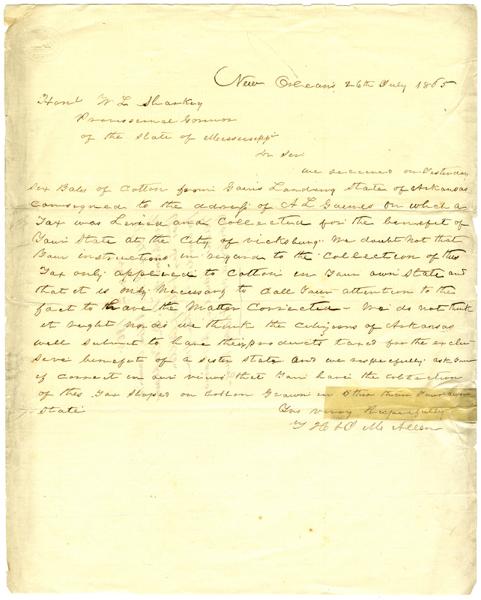 New Orleans 26th July 1865
Honl W L Sharkey
Provissional Govnor
of the State of Mississippi
Dr Sir
We received on Yesterday
Six Bales of Cotton from Gains Landing State of Arkansas
consigned to the address of A L Gaines on which a
Tax was Levied and Collected for the benefit of
Your State at the City of Vicksburg We doubt not that
Your instructions in regard to the Collection of this
Tax only applied to Cotton in Your own State and
that it is only necessary to call Your attention to the
fact to have the Matter Corrected - We do not think
it right nor do we think the citizens of Arkansas
will submit to have they products taxed for the exclu
sive benefit of a sister State and we respectfully ask You
if correct in our views that You have the collection
of this Tax stoped on Cotton Grown in Other than Your own
State
You Very Respectfully